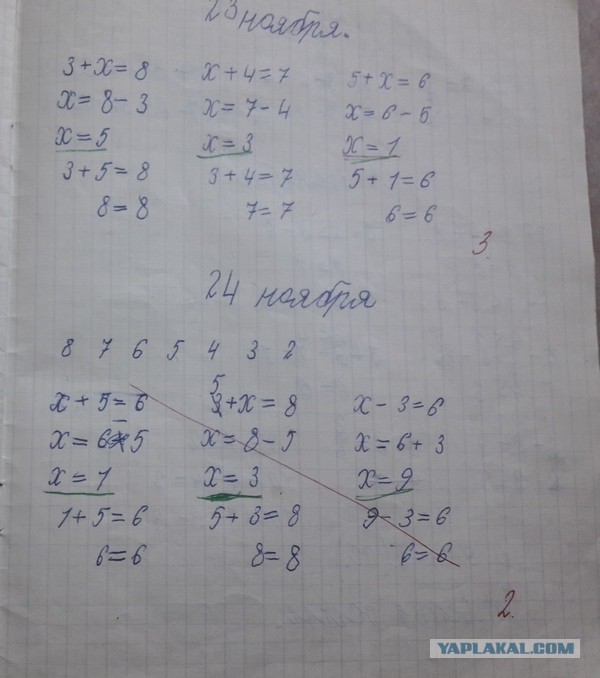 23 ноября.
3+x=8 x+4=7 5+x=6
x=8-3 x=7-4 x=6-5
x=5 x=3 x=1
3+5=8 3+4=7 5+1=6
8=8 7=7 6=6
3
24 ноября
8 7 6 5 4 3 2
x+5=6 5+x=8 x-3=6
x=6-5 x=8-5 x=6+3
x=1 x=3 x=9
1+5=6 5+3=8 9-3=6
6=6 8=8 6=6
2.
YAPLAKAL.COM